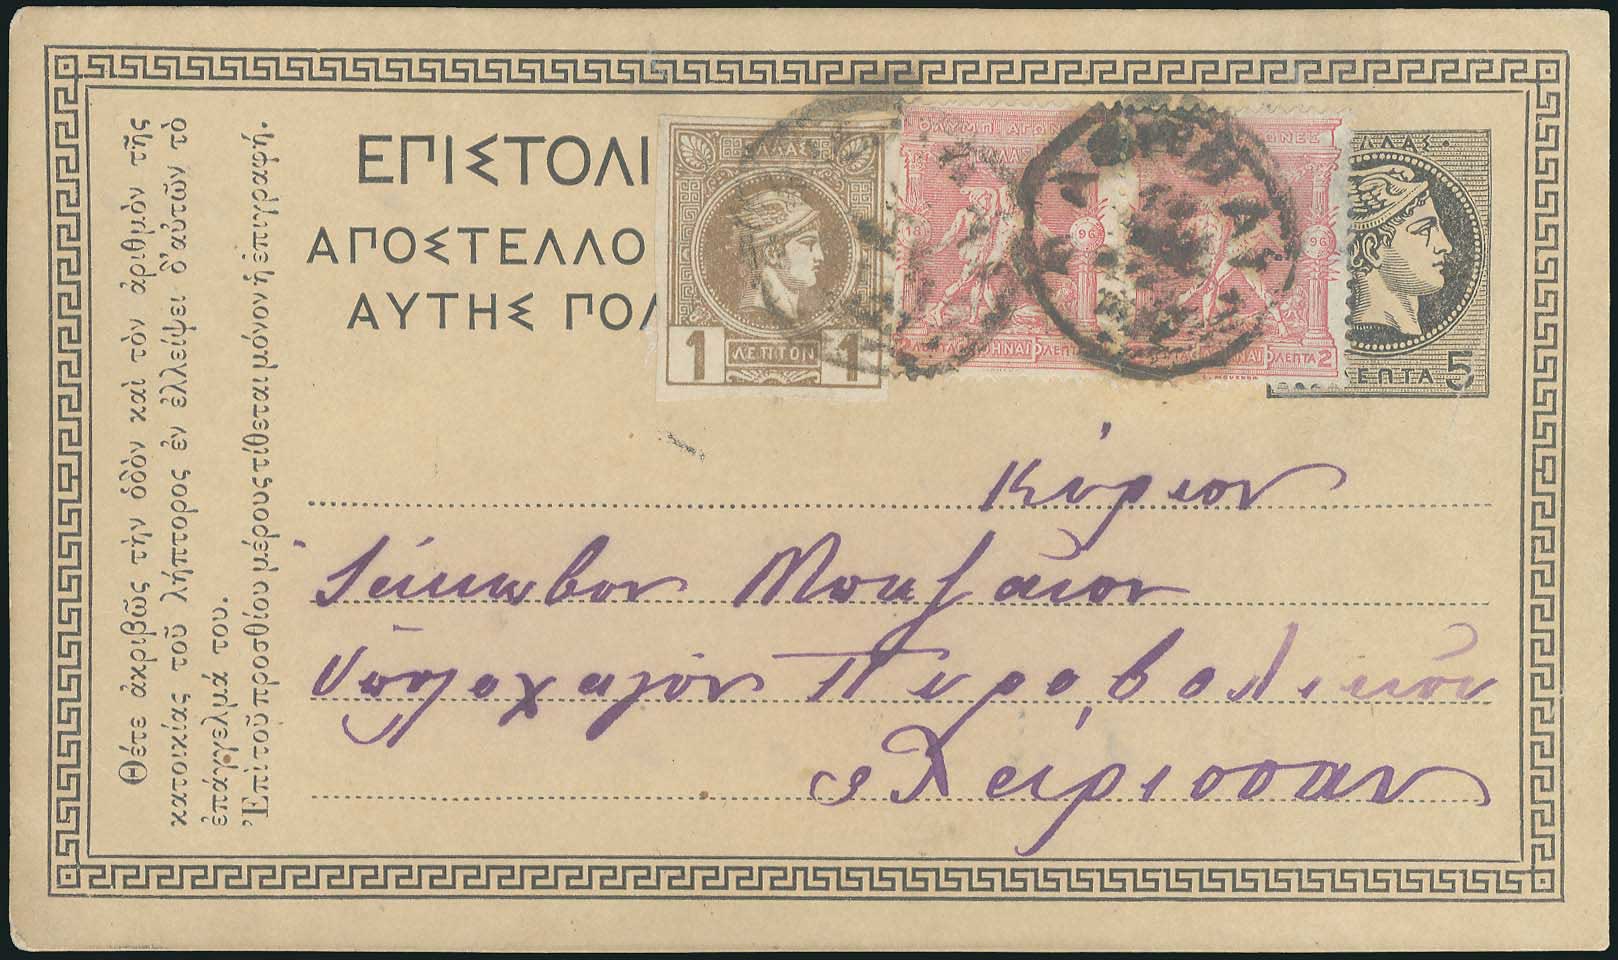 Θέτε ἀκριβῶς τὴν ὁδὸν καὶ τὸν ἀριθμὸν τῆς
κατοικίας τοῦ λήπτορος ἐν ἐλλείψει δ'αὐτῶν τὸ
ἐπάγγελμά του.
Ἐπὶ τοῦ προσθίου μέρους τίθεται μόνον ἡ ἐπιγραφή.
ΕΠΙΣΤΟΛΙ
ΑΠΟΣΤΕΛΛΟ
ΑΥΤΗΣ ΠΟΛ
ΕΛΛΑΣ
1 ΛΕΠΤΟΝ 1
ΟΛΥΜΠ ΑΓΩΝ
ΕΛΛΑΣ
18 96
ΑΘΗΝΑΙ ΛΕΠΤΑ
ΩΝΕΣ
96
ΛΕΠΤΑ 2
ΛΛΑΣ
ΛΕΠΤΑ 5
Κύριον
Ἰάκωβον
Ὑπολοχαγὸν Πυροβολικοῦ